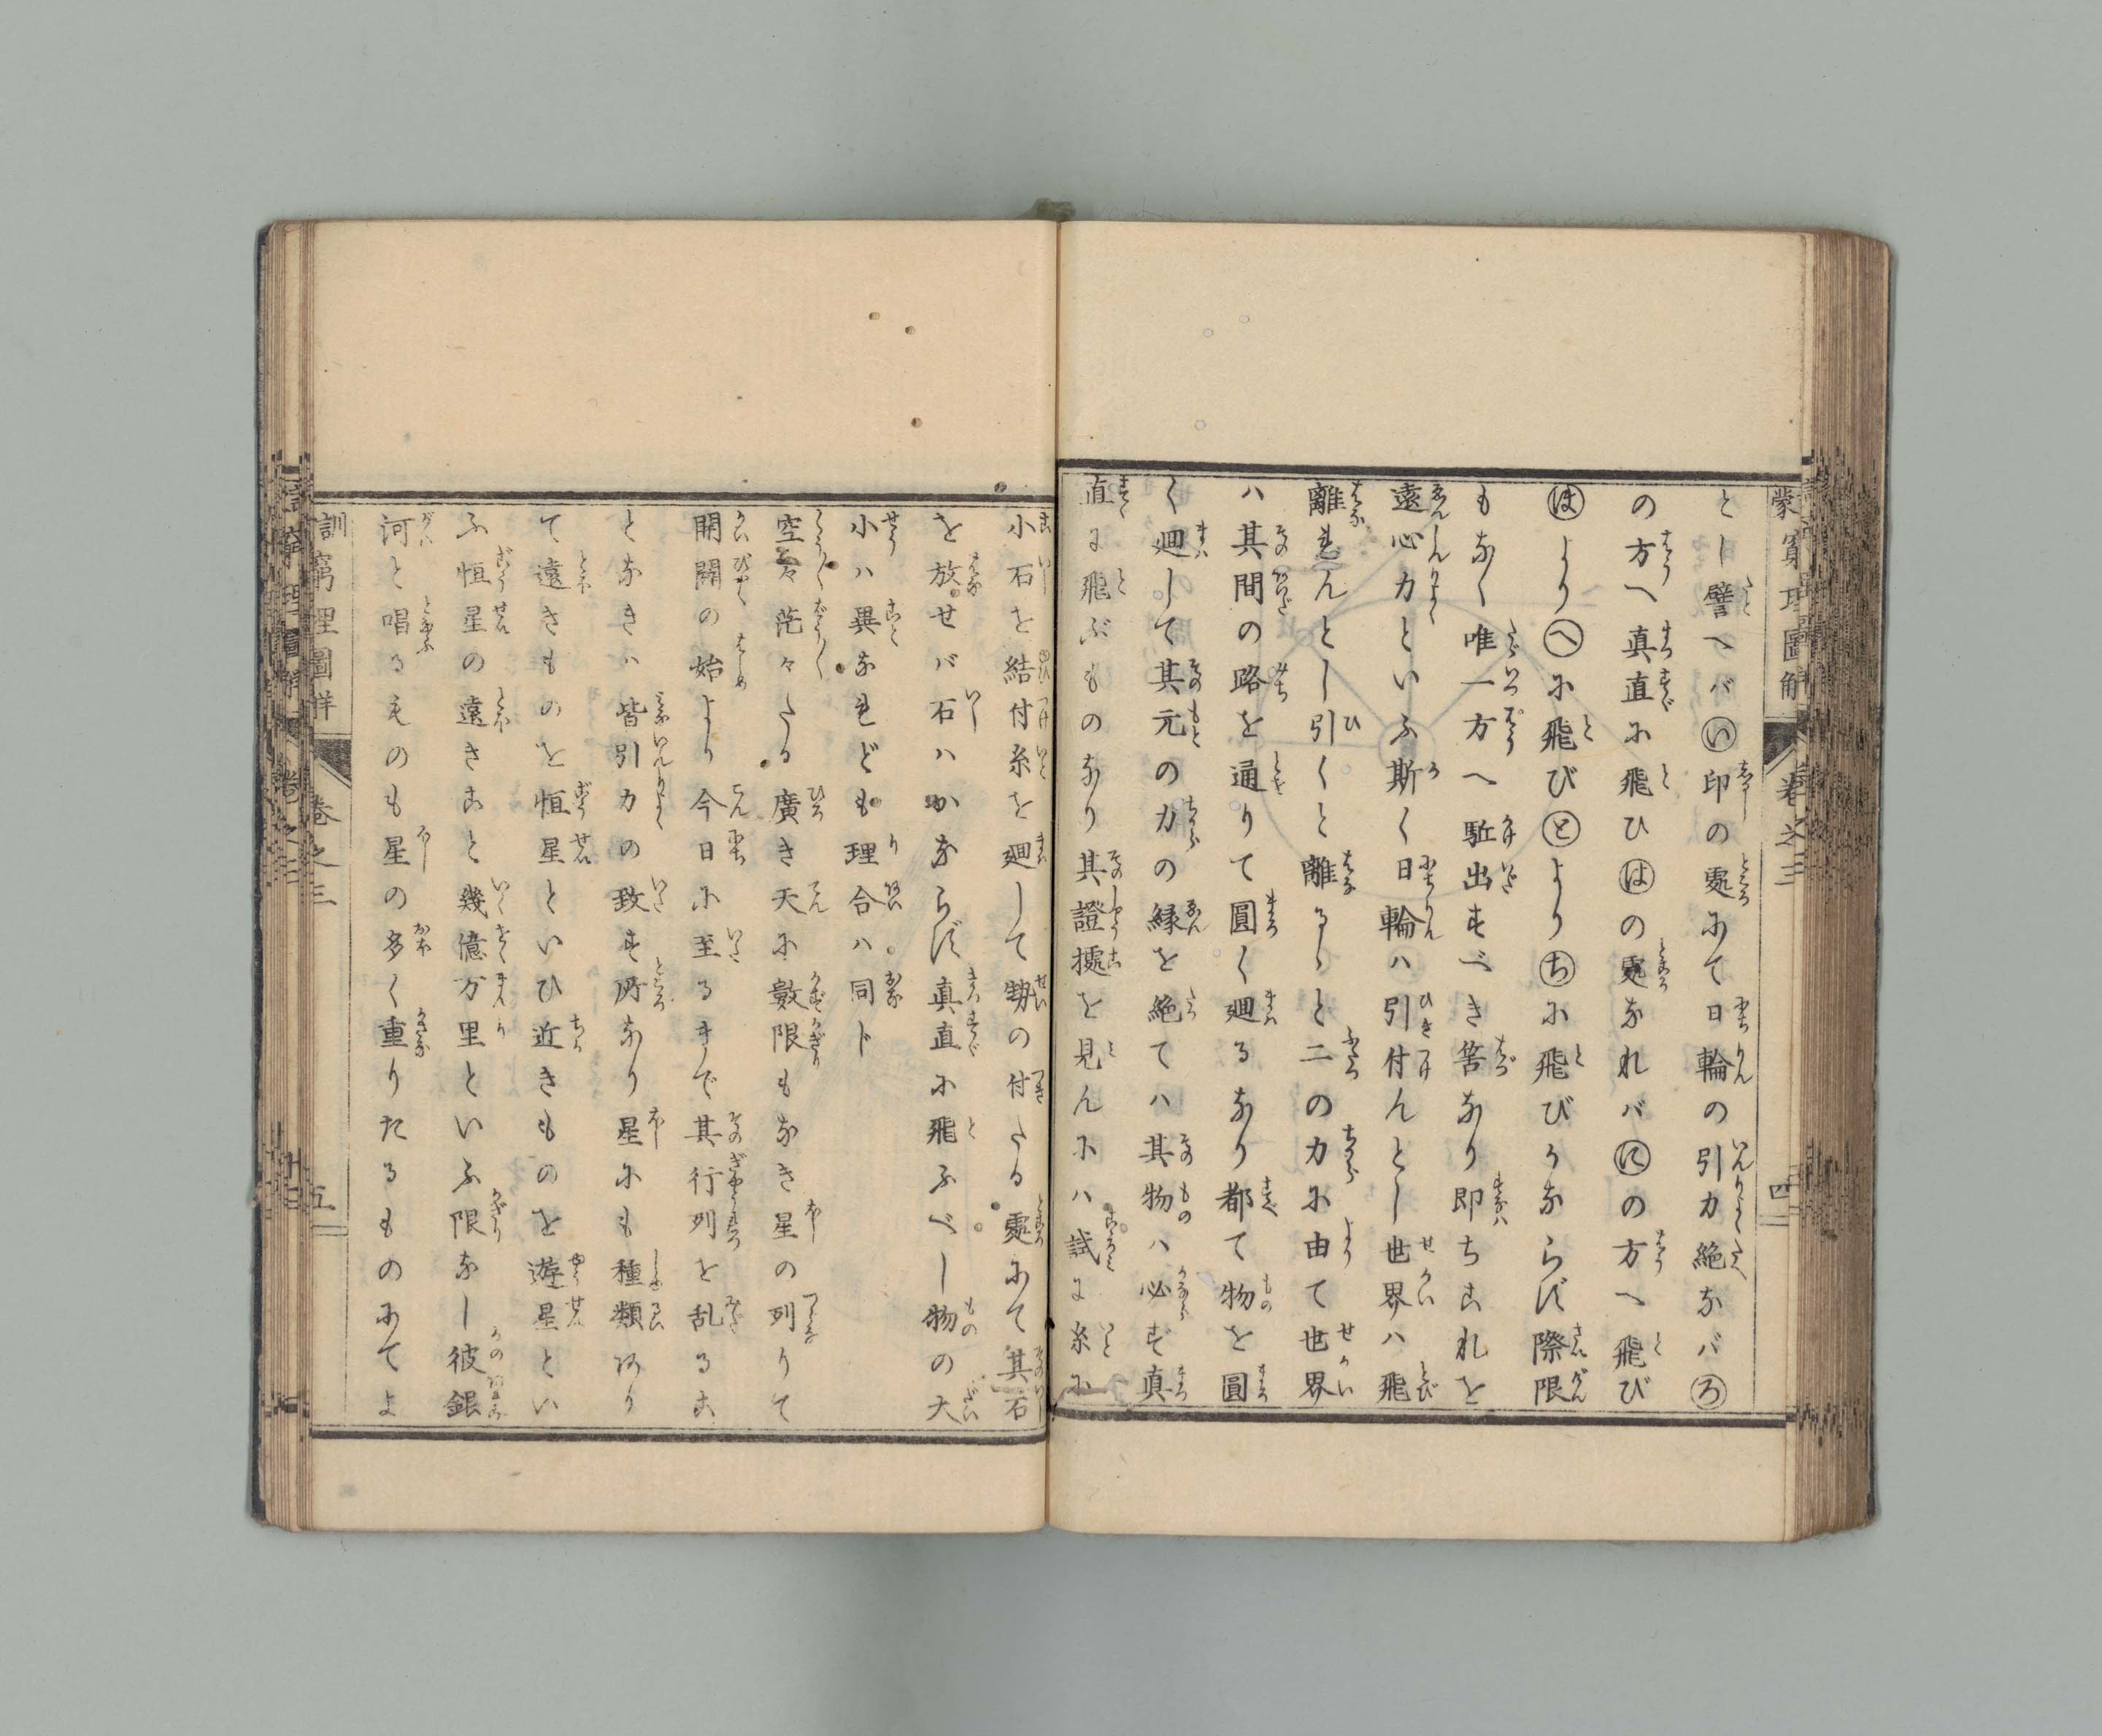 とし譬へバ㋑印の處にて日輪の引力絶なバ㋺
の方へ真直に飛ひ㋩の處なれバ㋥の方へ飛び
㋭より㋬に飛び㋣より㋠に飛びかならず際限
もなく唯一方へ駈出すべき筈なり即ちこれを
遠心力といふ斯く日輪ハ引付んとし世界ハ飛
離れんとし引くと離るゝと二の力に由て世界
ハ其間の路を通りて圓く廻るなり都て物を圓
く廻して其元の力の縁を絶てハ其物ハ必ず真
直に飛ぶものなり其證據を見んにハ試に糸に
蒙窮理圖解 卷之三 四
小石を結付糸を廻して勢の付たる處にて其石
を放せバ石ハかならず真直に飛ふべし物の大
小ハ異なれども理合ハ同ト
空々茫々たる廣き天に數限もなき星の列りて
開闢の始より今日に至るまで其行列を乱るこ
となきハ皆引力の致す所なり星にも種類あり
て遠きものを恒星といひ近きものを遊星とい
ふ恒星の遠きこと幾億万里といふ限なし彼銀
河と唱るものも星の多く重りたるものにてよ
訓窮理圖解 卷之三 五